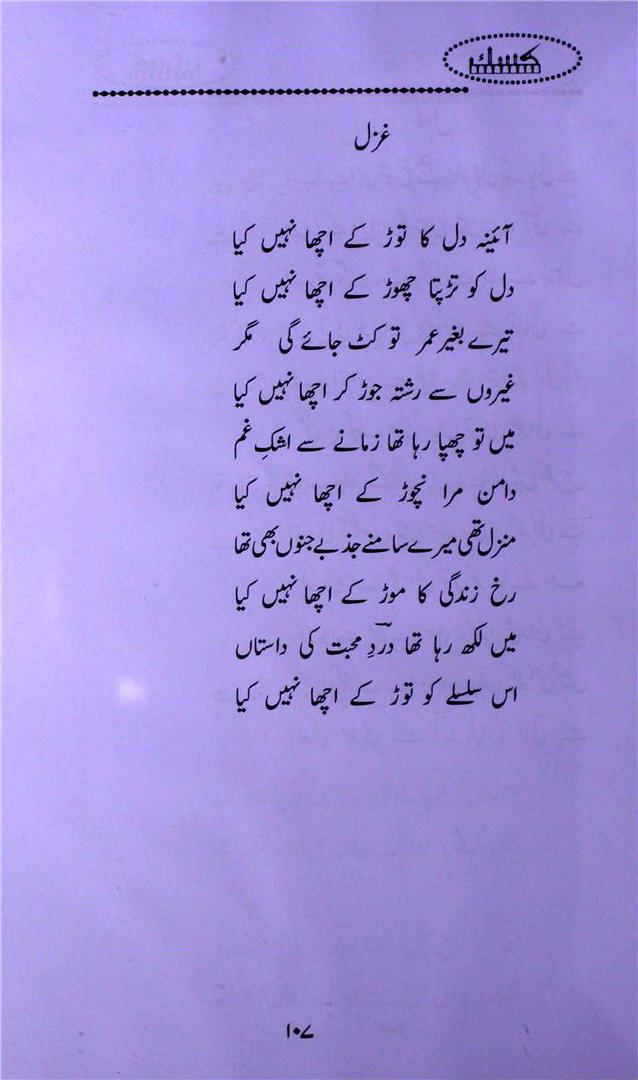 کسک
غزل
آئینہ دل کا توڑ کے اچھا نہیں کیا
دل کو تڑپتا چھوڑ کے اچھا نہیں کیا
تیرے بغیر عمر تو کٹ جائے گی مگر
غیروں سے رشتہ جوڑ کر اچھا نہیں کیا
میں تو چھپا رہا تھا زمانے سے اشکِ غم
دامن مرا نچوڑ کے اچھا نہیں کیا
منزل تھی میرے سامنے جذبے جنوں بھی تھا
رخ زندگی کا موڑ کے اچھا نہیں کیا
میں لکھ رہا تھا دردِؔ محبت کی داستاں
اس سلسلے کو توڑ کے اچھا نہیں کیا
۱۰۷